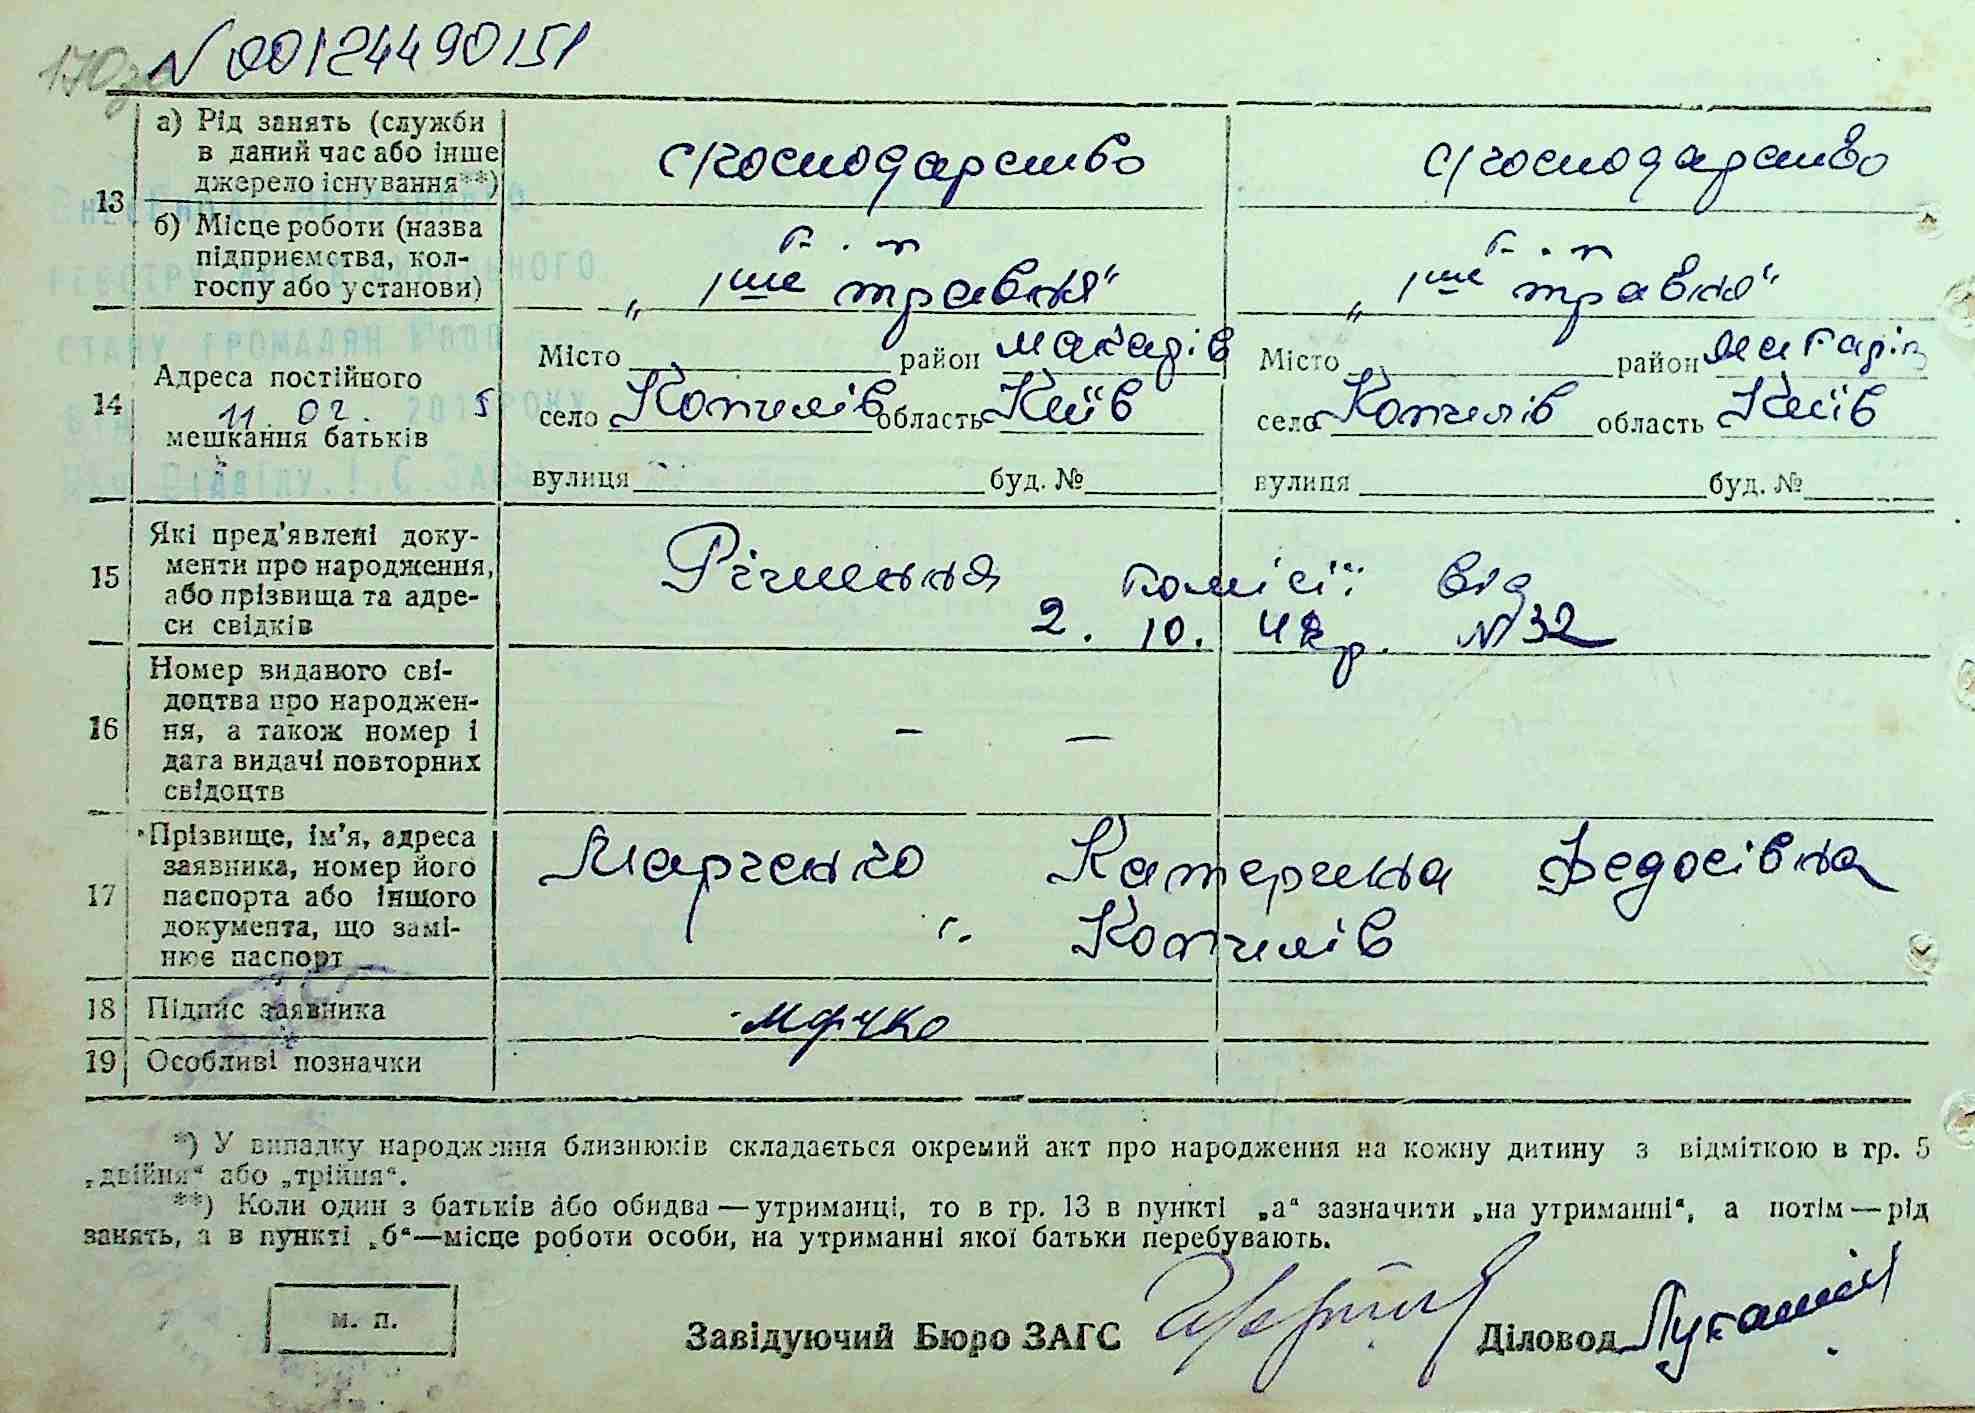 170 зв
N 00124490151
13
а) Рід занять (служби
в даний час або інше
джерело існування**)
с/господарство
с/господарство
б) Місце роботи (назва
підприємства, кол-
госпу або установи)
к-п
„ 1ше травня“
к-п
„ 1ше травня“
14
Адреса постійного
мешкання батьків
Місто район Макарів
село Копилів область Київ
вулиця буд. №
Місто район Макарів
село Копилів область Київ
вулиця буд. №
Внесено до Державного
реєстру актів цивільного
стану громадян
від 11.02. 2015 року
15
Які пред'явлені доку-
менти про народження,
або прізвища та адре-
си свідків
Рішення комісії від
2. 10. 42р. N 32
16
Номер виданого сві-
доцтва про народжен-
ня, а також номер і
дата видачі повторних
свідоцтв
— —
17
Прізвище, ім'я, адреса
заявника, номер його
паспорта або іншого
документа, що замі-
нює паспорт
Марченко Катерина Федосівна
с. Копилів
18
Підпис заявника
19
Особливі позначки
*) У випадку народження близнюків складається окремий акт про народження на кожну дитину з відміткою в гр. 5
„двійня“ або „трійня“.
**) Коли один з батьків або обидва — утриманці, то в гр. 13 в пункті „а“ зазначити „на утриманні“, а потім — рід
занять, а в пункті „б“—місце роботи особи, на утриманні якої батьки перебувають.
м. п.
Завідуючий Бюро ЗАГС
Діловод